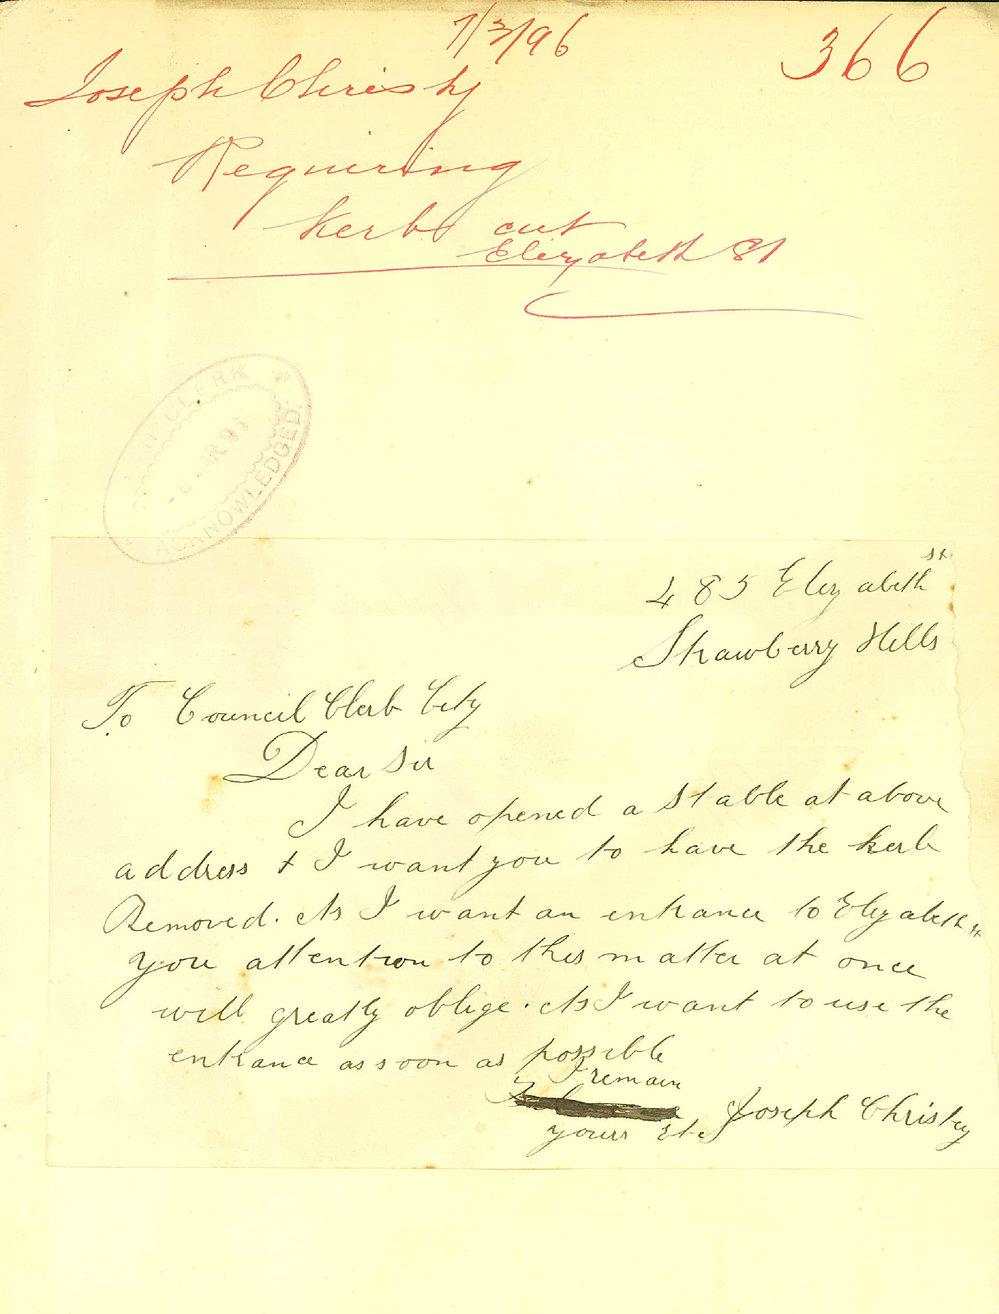 7/3/96
366
Joseph Christy
Requiring
Kerb cut
Elizabeth St
TOWN CLERK
ACKNOWLEDGED.
485 Elizabeth st
Strawberry Hills
To Council Clerk City
Dear Sir
I have opened a Stable at above
address & I want you to have the kerb
Removed. As I want an entrance to Elizabeth st
you attention to this matter at once
will greatly oblige. As I want to use the
entrance as soon as possible
I remain
yours Etc Joseph Christey